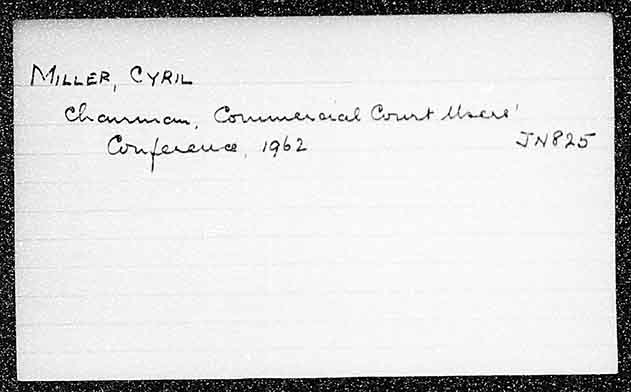 MILLER, CYRIL
Chairman, Commercial Court Users'
Conference, 1962 JN825